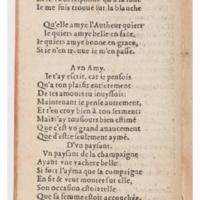 Ie me suis trouué sur la blanche
Qu'elle ayme l'Autheur quiert
Ie quiers amye belle en face,
Ie quiers amye bonne en grace,
Si ie n'en treuue ie m'en passe.
A vn Amy.
Ie t'ay escrit, car ie pensois
Qu'a ton plaisir entierement
De tes amours tu iouyssois:
Maintenant ie pense autrement,
Et t'en croy bien à ton serment:
Mais i'ay tousiours bien estimé
Que c'est vn grand auancement
Que d'estre seulement aymé.
D'vn paysant.
Vn paysant de la champaigne
Ayant vne vachere belle
Si fort l'ayma que sa compaigne
En fit & veut monter sur elle,
Son occasion estoit telle
Que sa femme estoit accouchée,